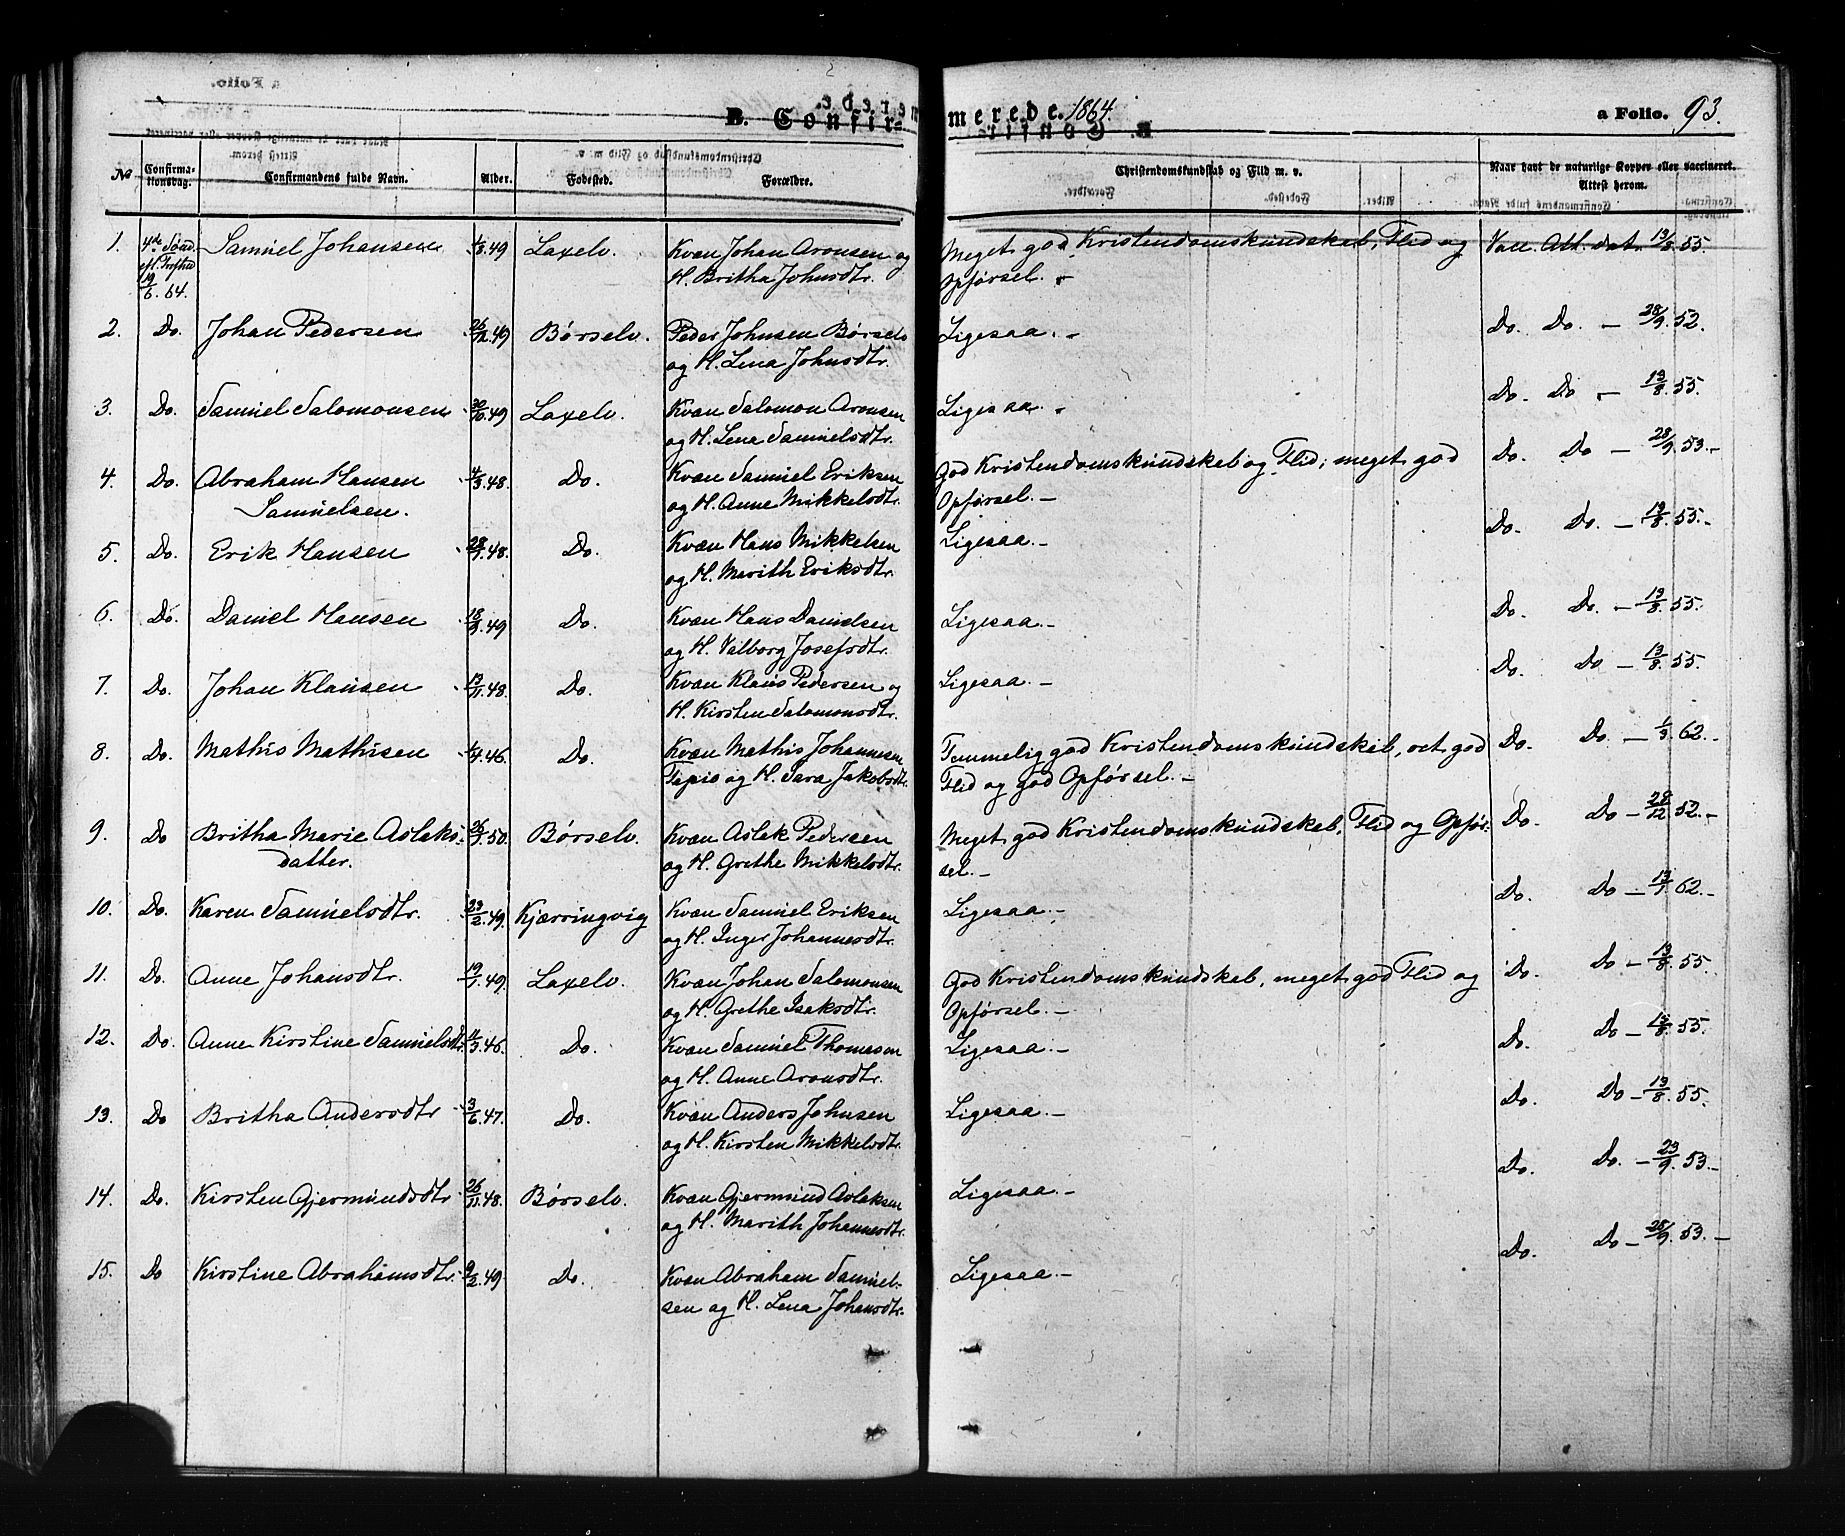 B. Confirmerede. 1864. a Folio. 93.
No Confirmationsdag. Confirmandens fulde Navn. Alder. Fødested. Forældre. Christendomskundskab og Flid m. v. Naar havt de naturlige Kopper eller vaccineret. Attest herom.
1. 4de Sønd. eft. Trefhed 19/6. 64. Samuel Johansen 49 Laxelv. Kvæn Johan Aronsen og Meget god Kristendomskundskab, Flid og Vacc. Att. dat. 13/8 55
H. Britha Johnsdtr. Opførsel. -
2. Do. Johan Pedersen 26/12 49 Børselv. Peder Johnsen Børselv Ligesaa. - Do. Do. - 28/9. 52.
og H. Lena Johnsdtr.
3. Do. Samuel Salomonsen 30/10 49 Laxelv. Kvæn Salomon Aronsen Ligesaa. - Do. Do - 13/8. 55.
og H. Lena Samuelsdtr.
4. Do. Abraham Hansen 4/5 48. Do. Kvæn Samuel Eriksen God Kristendomskundskab og Flid; meget god Do. Do - 28/9. 53.-
Samuelsen. og H. Anne Mikkelsdtr. Opførsel. -
5. Do. Erik Hansen 48. Do. Kvæn Hans Mikkelsen Ligesaa. - Do. Do. - 13/8. 55.-
og H. Marith Eriksdtr.
6. Do. Daniel Hansen 49 Do. Kvæn Hans Danielsen Ligesaa. - Do. Do. - 13/8. 55.
og H. Valborg Josefsdtr.
7. Do. Johan Klausen 13/11. 48. Do. Kvæn Klaus Pedersen og Ligesaa. - Do. Do - 13/8. 55.
H. Kirsten Salomonsdtr.
8. Do. Mathis Mathisen 46. Do. Kvæn Mathis Johannesen Temmelig god Kristendomskundskab, ret god Do. Do. - 62.-
Tapio og H. Sara Jakobsdtr. Flid og god Opførsel. -
9. Do Britha Marie Aslaks- 50. Børselv. Kvæn Aslak Pedersen Meget god Kristendomskundskab, Flid og Opfør- Do. Do - 28/12 52.-
datter. og H. Grethe Mikkelsdtr. sel. -
10. Do. Karen Samuelsdtr. 23/2. 49. Kjærringvig Kvæn Samuel Eriksen Ligesaa. - Do. Do - 62.-
og H. Inger Johannesdtr.
11. Do. Anne Johansdtr. 49. Laxelv. Kvæn Johan Salomonsen God Kristendomskundskab, meget god Flid og Do. Do - 13/8. 55.
og H. Grethe Isaksdtr. Opførsel. -
12. Do. Anne Kirstine Samuelsdtr. 46. Do. Kvæn Samuel Thomasen Ligesaa. - Do. Do - 13/8. 55.
og H. Anne Aronsdtr.
13. Do Britha Andersdtr 3/6. 47. Do. Kvæn Anders Johnsen Ligesaa. - Do. Do - 13/8. 55.
og H. Kirsten Mikkelsdtr.
14. Do. Kirsten Gjermundsdtr. 26/11. 48. Børselv. Kvæn Gjermund Aslaksen Ligesaa. - Do. Do. - 23/9. 53.-
og H. Marith Johannesdtr.
15. Do Kirstine Abrahamsdtr. 9/2. 49. Do. Kvæn Abraham Samuel- Ligesaa. - Do. Do - 28/9. 53.-
sen og H. Lena Johansdtr.